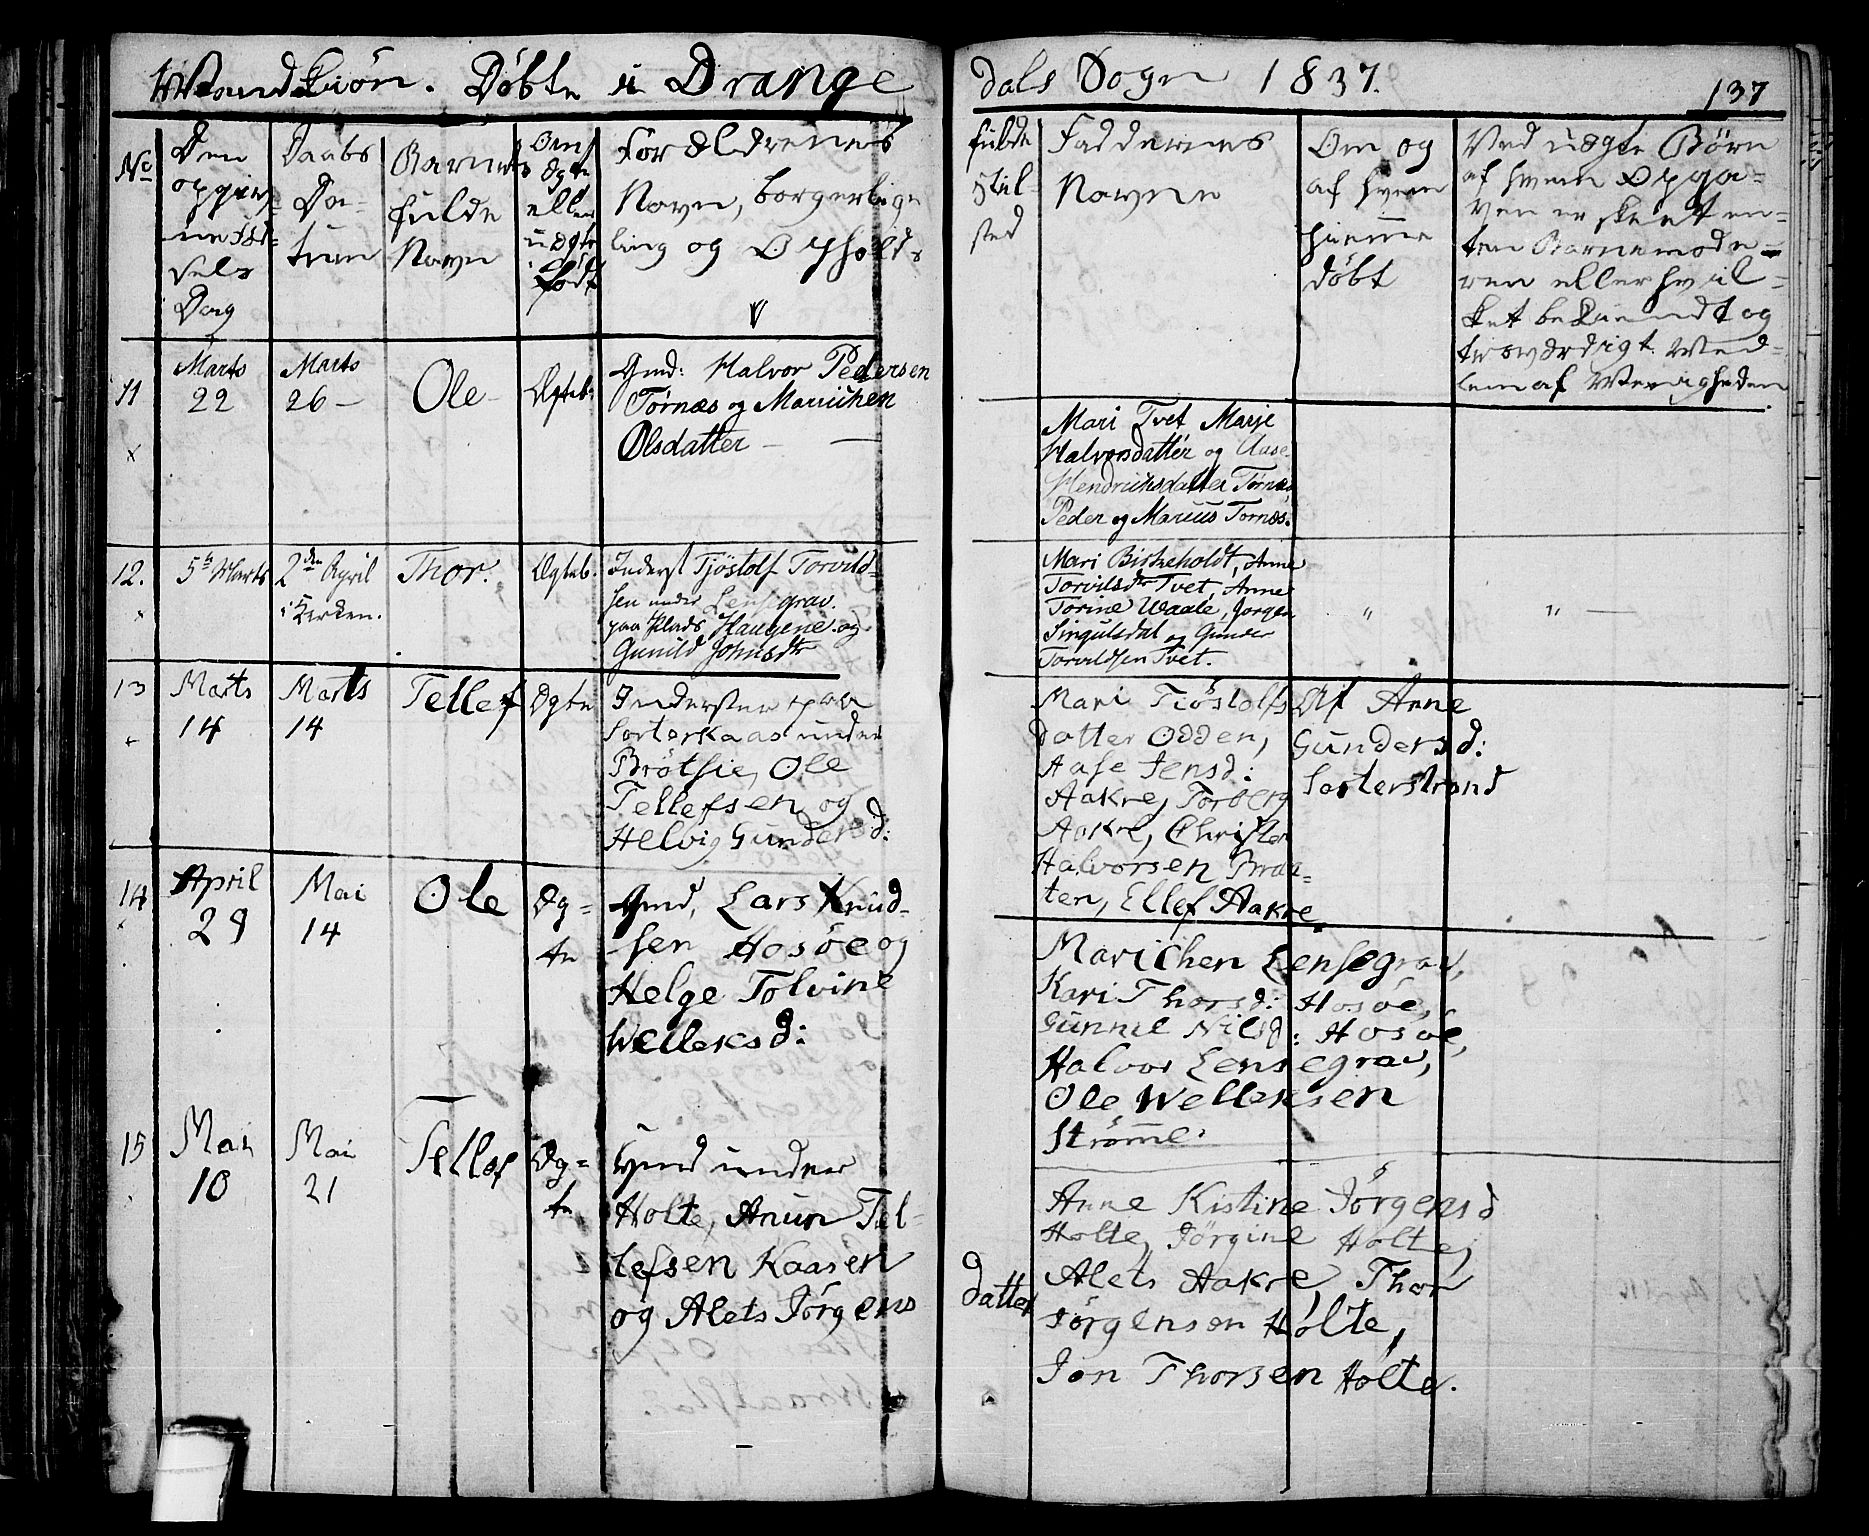 Mandkiön. Döbte i Drange
dals Sogn 1837.
137
No
Den
opgivne
Fød-
sels
Dag
Daabs
Da-
tum
Barnets
fulde
Navn
Om
Ægte
eller
uægte
Født
Forældrenes
Navn, borgerlige
ling og Opholds
fulde
Stil-
sted
Faddernes
Navne
Om og
af hvem
hiemme
döbt
Ved uægte Børn
af hvem Opga-
ven er skeet en-
ten Barnemode-
ren eller hvil-
ket bekiendt og
troværdigt Med-
lem af Menigheden
11
Marts
22
Marts
26 —
Ole
Ægteb.
Gmd: Halvor Pedersen
Törnæs og Mariichen
Olsdatter —
Mari Tvet Marje
Halvorsdatter og Aase
Hendrichsdatter Törnæs
Peder og Marius Tornæs.
12.
5te Marts
2den April
i Kirken.
Thor.
Ægteb.
Inderst Tjöstolf Torvild-
sen under Lensegrav.
paa Plads Haugene og
Gunild Johnsdtr
Mari Birkeholdt, Anne
Torvilsdtr Tvet, Anne
Torine Waale, Jorgen
Singulsdal og Gunder
Torvildsen Tvet.
"
" —
13
Marts
14
Marts
14
Tellef
Ægte
Inderster paa
Sorterkaas under
Brötsie, Ole
Tellefsen og
Helvig Gundersd:
Mari Tiöstolfs
datter Odden,
Aase Jensd:
Aakre, Torberg
Aakre, Christen
Halvorsen Braa-
ten, Ellef Aakre
Af Anne
Gundersd:
Sorterstrand
14
April
29
Mai
14
Ole
Æg-
te
Gmd, Lars Knud-
sen Hosöe og
Helge Tolvine
Welleksd:
Marichen Lensegrav,
Kari Thorsd: Hosöe,
Gunnil Nilsd: Hosöe,
Halvor Lensegrav,
Ole Welleksen
Strömme.
15
Mai
10
Mai
21
Tellef
Æg-
te
Gmd under
Holte, Anun Tel-
lefsen Kaasen
og Alets Jörgens
datter
Anne Kistine Jörgensd
Holte, Jörgine Holte,
Alets Aakre, Thor
Jörgensen Holte,
Jon Thorsen Holte.